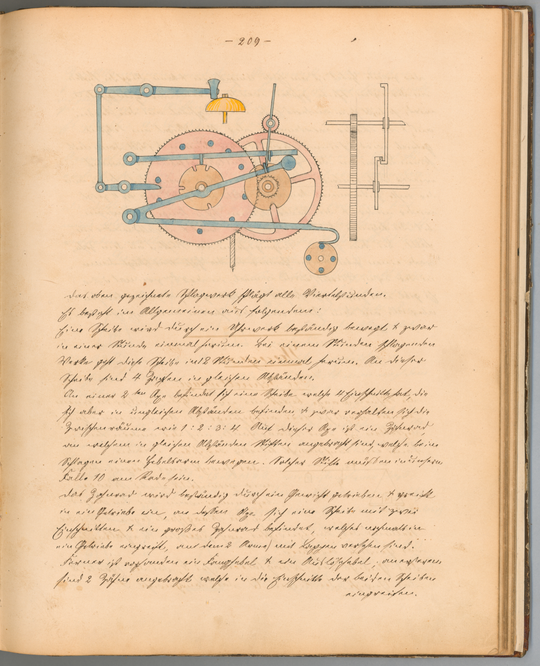 - 209 -
Das oben gezeichnete Schlagwerk schlägt alle Viertelstunden.
Es besteht im Allgemeinen aus folgendem:
Eine Scheibe wird durch ein Uhrwerk beständig bewegt & zwar
in einer Stunde einmal herum. Bei einem Stunden schlagenden
Werke geht diese Scheibe in 12 Stunden einmal herum. An dieser
Scheibe sind 4 Zapfen in gleichen Abständen.
An einer 2ten Axe befindet sich eine Scheibe welche 4 Einschnitte hat, die
sich aber in ungleichen Abständen befinden & zwar verhalten sich die
Zwischenräume wie 1:2:3:4. Auf dieser Axe ist ein Zahnrad
an welchem in gleichen Abständen Stiften angebracht sind, welche beim
Schlagen einen Hebelarm bewegen. Solcher Stifte müssen in unserem
Falle 10 am Rade sein.
Das Zahnrad wird beständig durch ein Gewicht getrieben & greift
in ein Getriebe ein, an dessen Axe sich eine Scheibe mit zwei
Einschnitten & ein großes Zahnrad befindet, welches nochmals in
ein Getriebe eingreift, an dem 2 Arme mit Lappen versehen sind.
Ferner ist vorhanden ein Fanghebel & ein Auslösehebel, an ersterem
sind 2 Zähne angebracht welche in die Einschnitte der beiden Scheiben
eingreifen.